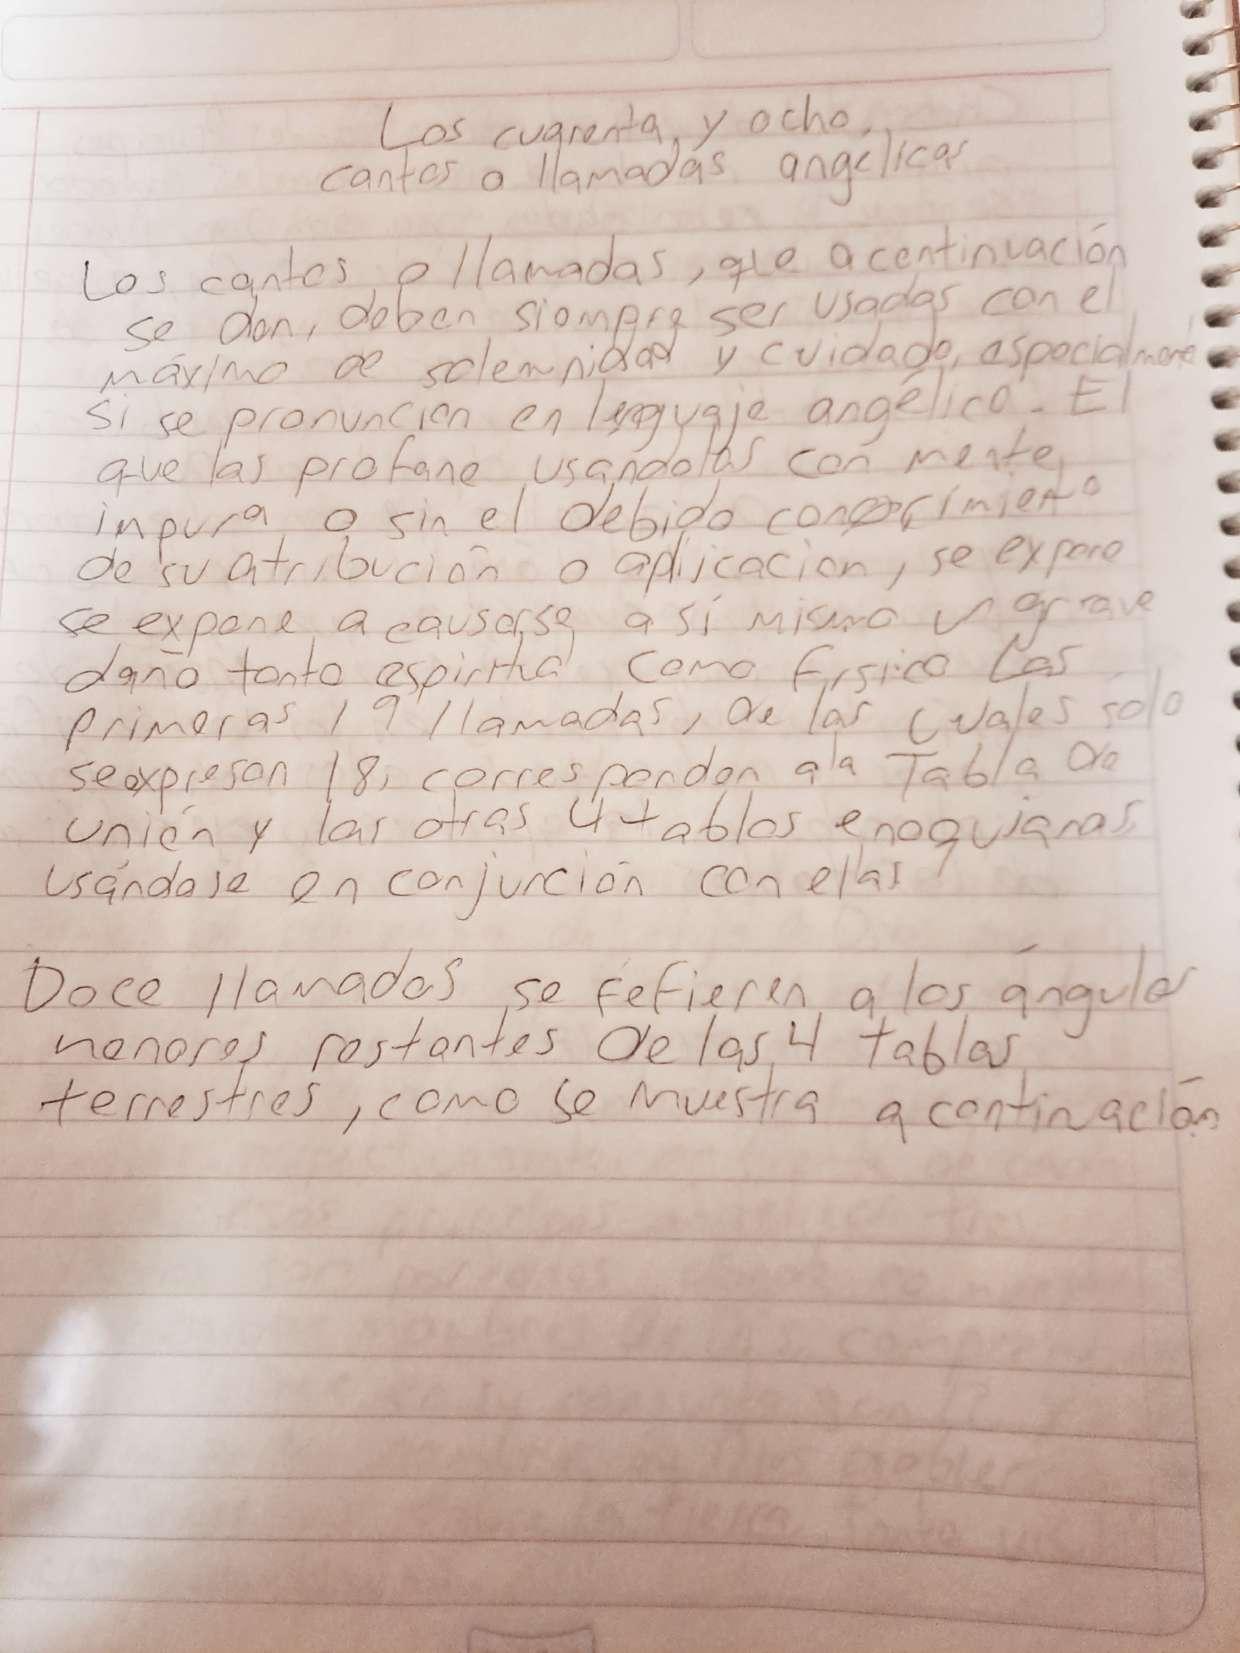 Los cuarenta y ocho
cantos o llamadas angelicas
Los cantos o llamadas, que a continuación
se dan, deben siempre ser usadas con el
máximo de solemnidad y cuidado, especialmente
si se pronuncian en lenguaje angélico. El
que las profane usandolas con mente
impura o sin el debido conocimiento
de su atribución o aplicacion, se expone
se expone a causarse a sí mismo un grave
daño tanto espiritual como fisico Las
primeras 19 llamadas, de las cuales sólo
se expresan 18, corresponden a la Tabla de
unión y las otras 4 tablas enoquianas
usándose en conjunción con ellas
Doce llamadas se refieren a los ángulos
menores restantes de las 4 tablas
terrestres, como se muestra a continación